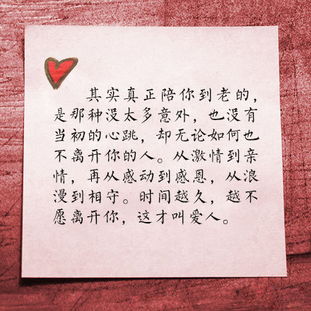 其实真正陪你到老的，
是那种没太多意外，也没有
当初的心跳，却无论如何也
不离开你的人。从激情到亲
情，再从感动到感恩，从浪
漫到相守。时间越久，越不
愿离开你，这才叫爱人。